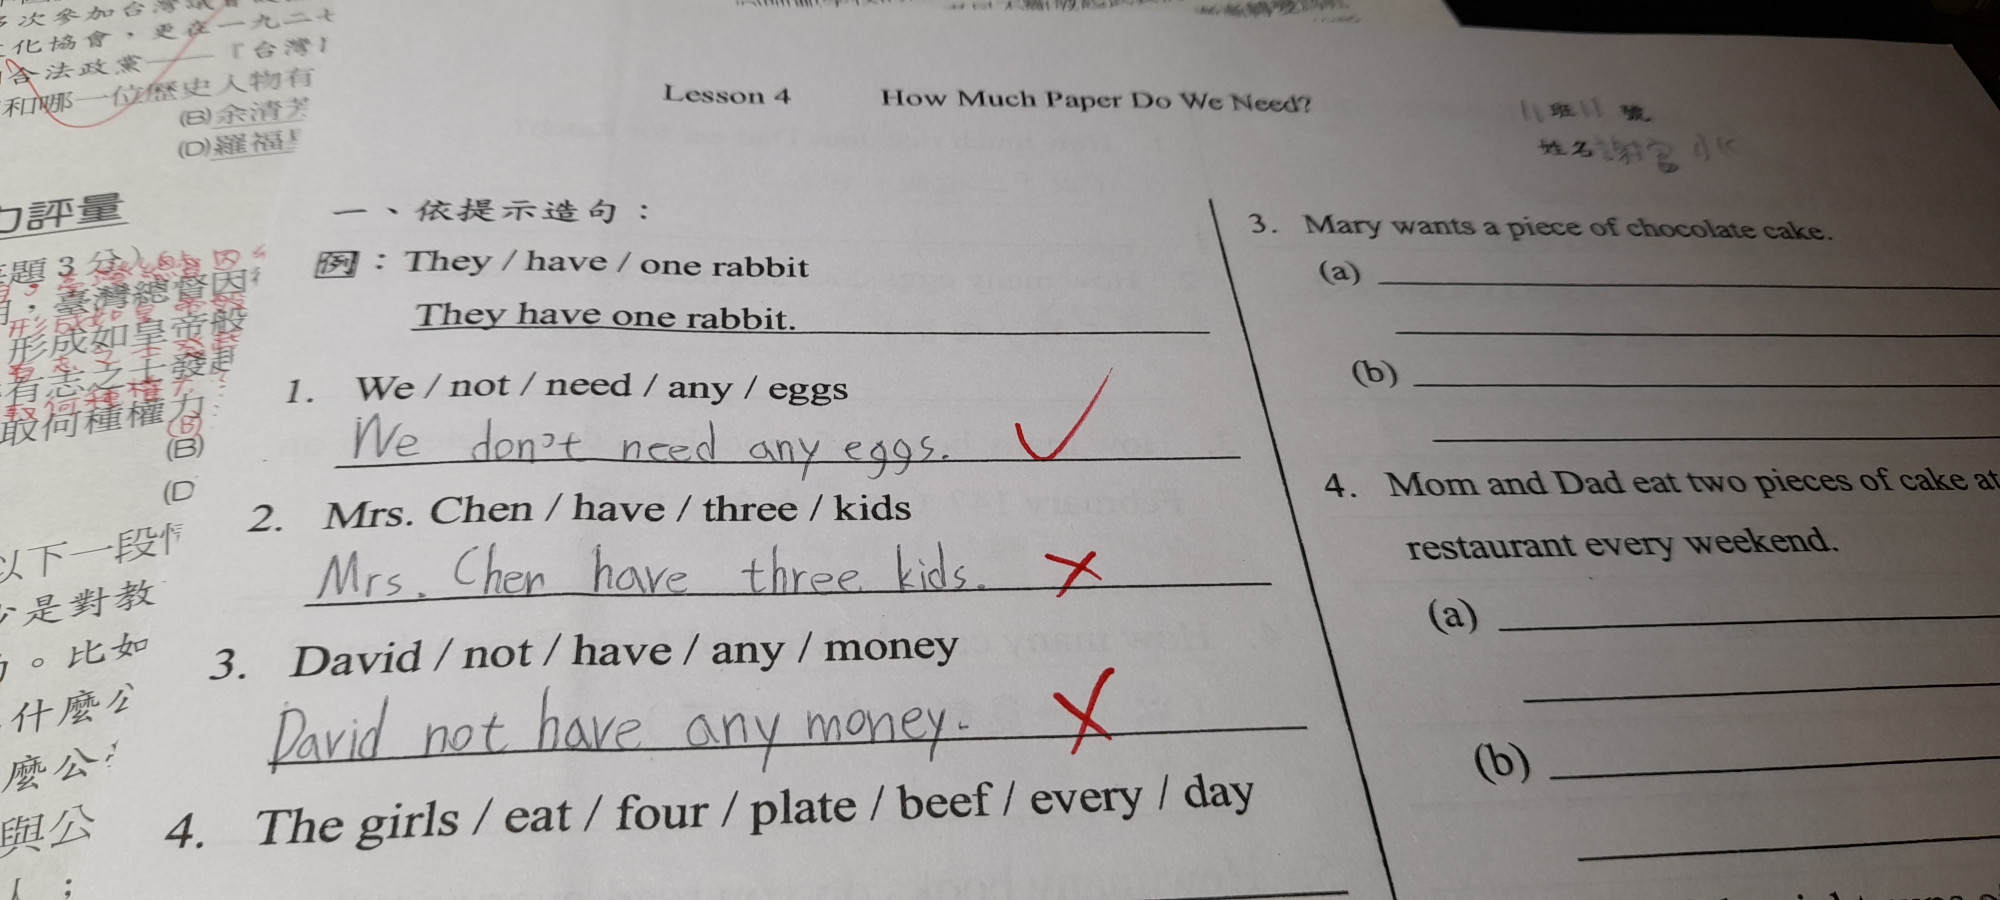 多次參加台灣
化協會，更在一九二七
合法政黨——「台灣
和哪一位歷史人物有
(B)余清芳
(D)羅福
Lesson 4 How Much Paper Do We Need?
11班11號
姓名謝
力評量
題3分)
，臺灣總督因
形成如皇帝般
形成如皇帝般
有志之士發起
有志之士發
取何種權力
取何種權力
(B)
(B)
(D
以下一段
是對教
。比如
什麼公
麼公
與公
人；
一、依提示造句：
例：They / have / one rabbit
They have one rabbit.
1. We / not / need / any / eggs
We don't need any eggs.
2. Mrs. Chen / have / three / kids
Mrs. Chen have three kids.
3. David / not / have / any / money
David not have any money.
4. The girls / eat / four / plate / beef / every / day
3. Mary wants a piece of chocolate cake.
(a)
(b)
4. Mom and Dad eat two pieces of cake at
restaurant every weekend.
(a)
(b)